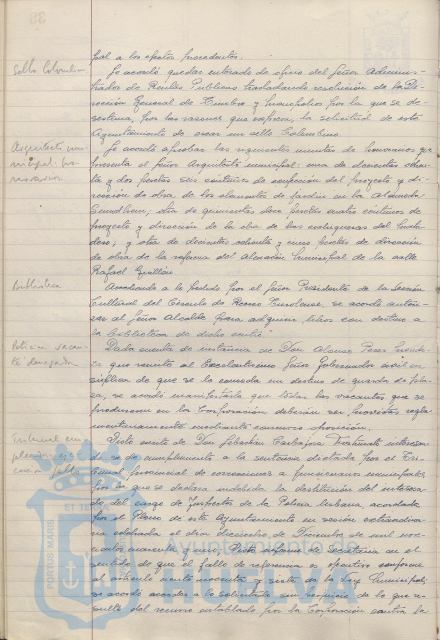 pal a los efectos procedentes.
Sello Colombino
Se acordó quedar enterado de oficio del Señor Adminis-
trador de Rentas Públicas trasladando resolución de la Di-
rección General de Timbre y Monopolios por la que se de-
sestima, por las razones que expresa, la solicitud de este
Ayuntamiento de crear un sello Colombino.
Arquitecto mu-
nicipal:
Se acordó aprobar las siguientes minutas de honorarios que
presenta el Señor Arquitecto municipal: una de doscientas
y dos pesetas céntimos de del proyecto y di-
rección de obra de los elementos de jardín en la Alameda
otra de quinientas doce pesetas cuatro céntimos de
proyecto y dirección de la obra de las
y otra de doscientas ochenta y cinco pesetas de dirección
de obra de la reforma del Almacén Municipal de la calle
Rafael Guillén.
Biblioteca
Accediendo a lo pedido por el Señor Presidente de la Sección
Cultural del Círculo de Recreo se acordó autori-
zar al Señor Alcalde para adquirir libros con destino a
la biblioteca de dicho centro.
Dada cuenta de instancia de Don Alonso Pérez
que remite el Excelentísimo Señor Gobernador civil en
súplica de que se le conceda un destino de guarda de
se acordó manifestarle que todas las vacantes que se
produzcan en la Corporación deberán ser provistas regla-
mentariamente mediante concurso oposición.
Visto escrito de Don Sebastián Carbajosa interesan-
do se dé cumplimiento a la sentencia dictada por el Tri-
bunal provincial de a funcionarios municipales
por la que se declara indebida la destitución del interesa-
do del cargo de Inspector de la Policía Urbana, acordada
por el Pleno de este Ayuntamiento en sesión extraordina-
ria celebrada el día dieciocho de Diciembre de mil nove-
cientos cuarenta y uno. Visto informe de Secretaría en el
sentido de que el fallo de referencia es ejecutivo conforme
al artículo ciento noventa y siete de la Ley Municipal,
se acordó acceder a lo solicitado sin perjuicio de lo que re-
sulte del recurso entablado por la Corporación contra la
PORTUS MARIS
Ayuntamiento de
HUELVA